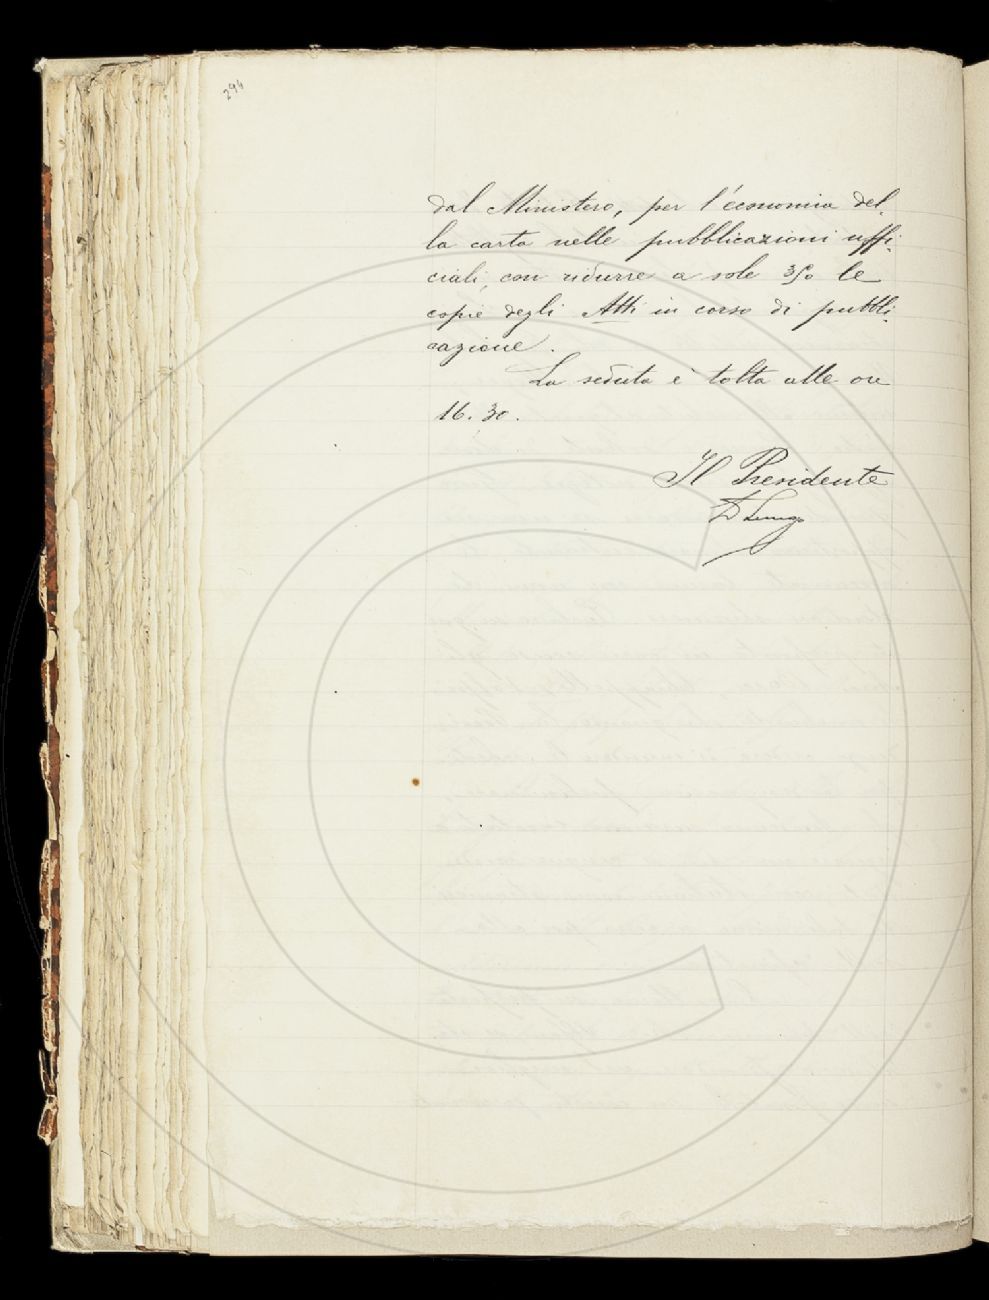 294
dal Ministero, per l'economia del-
la carta nelle pubblicazioni uffi-
ciali, con ridurre a sole 350 le
copie degli Atti in corso di pubbli-
cazione.
La seduta è tolta alle ore
16.30.
Il Presidente